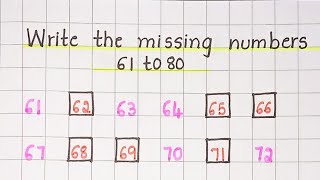 Write the missing numbers
61 to 80
61 62 63 64 65 66
67 68 69 70 71 72